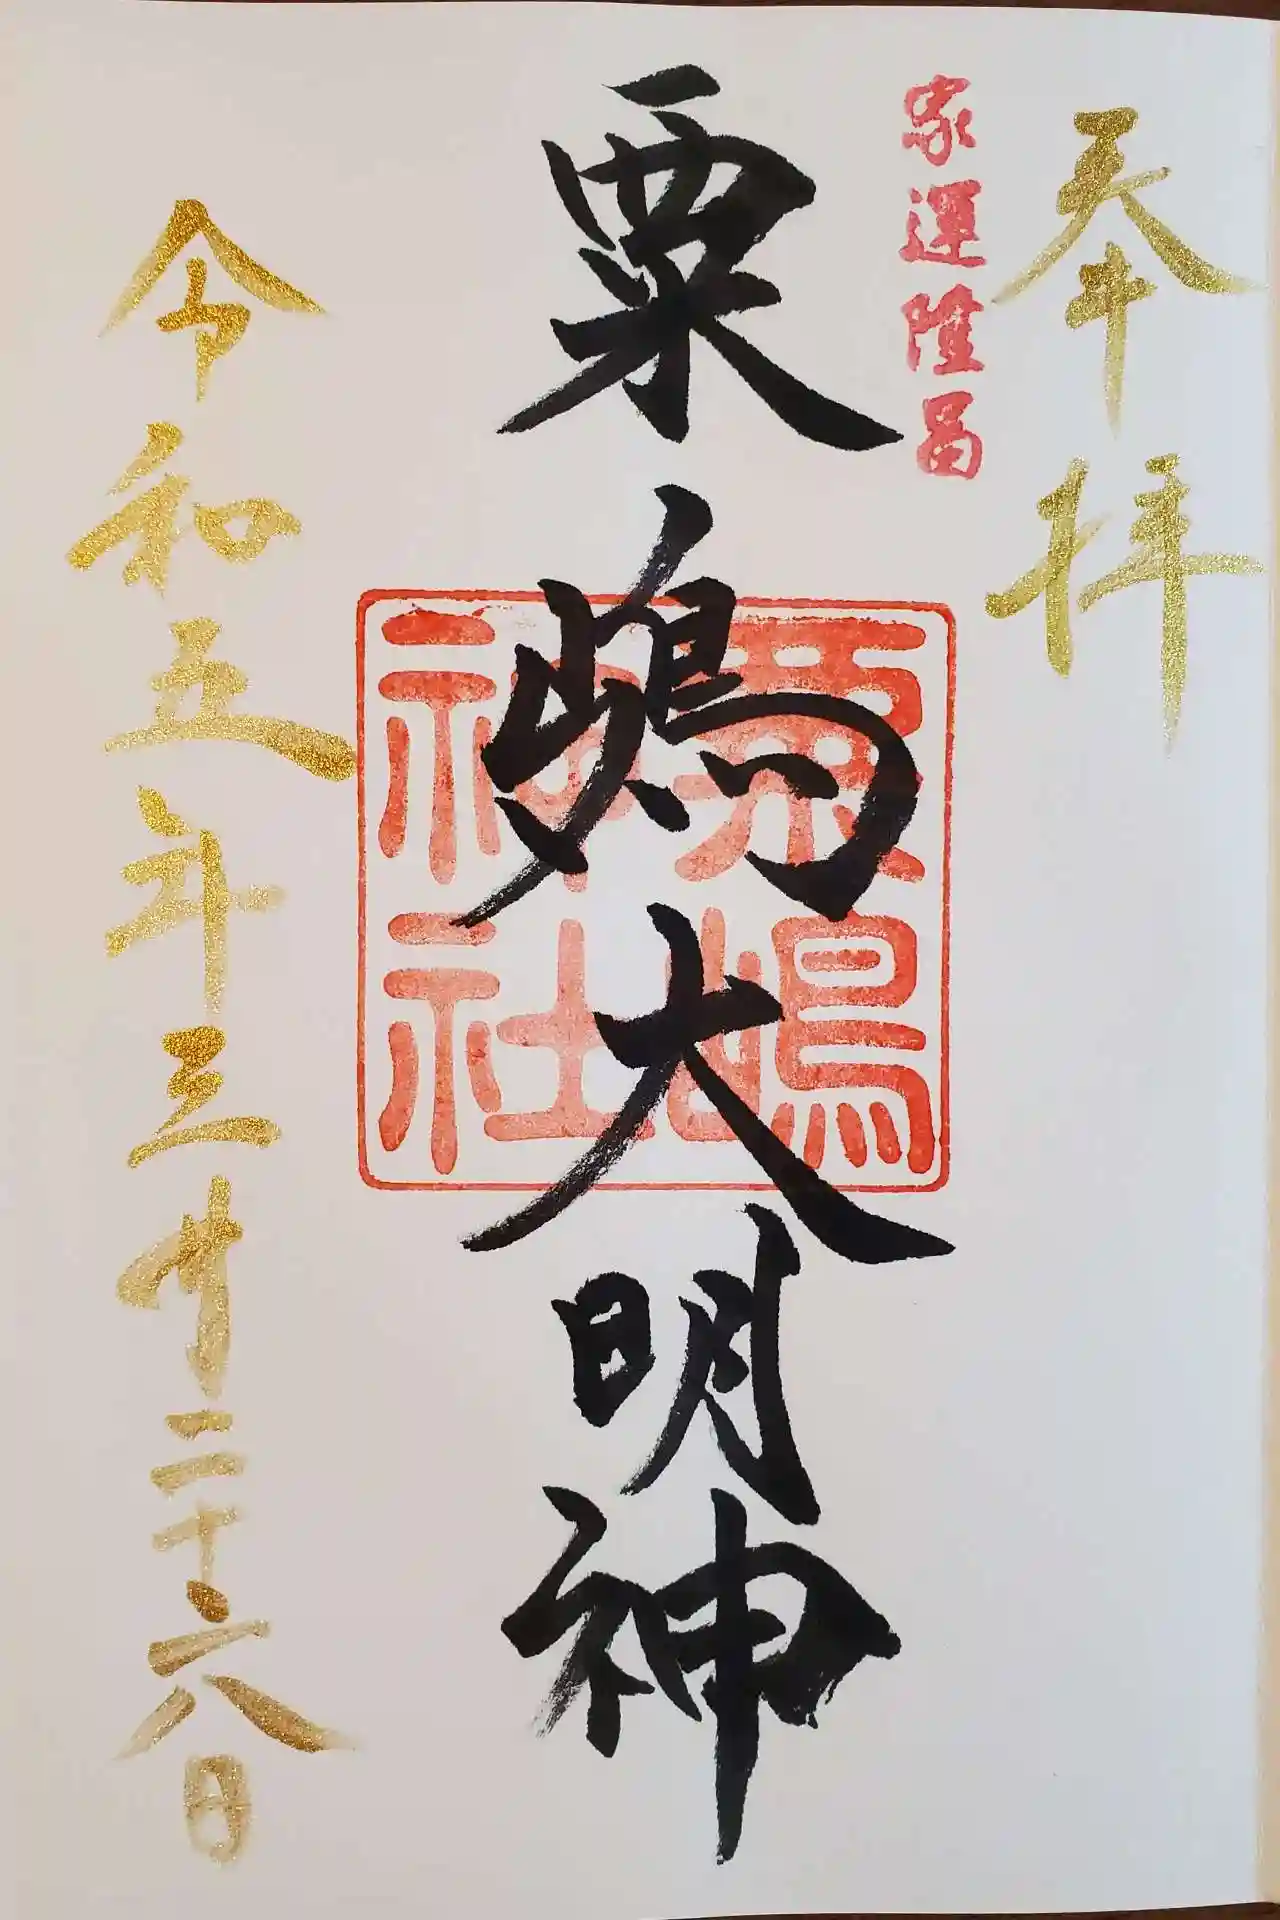 奉拝
家運隆昌
粟嶋大明神
粟嶋
神社
令和五年三月二十六日